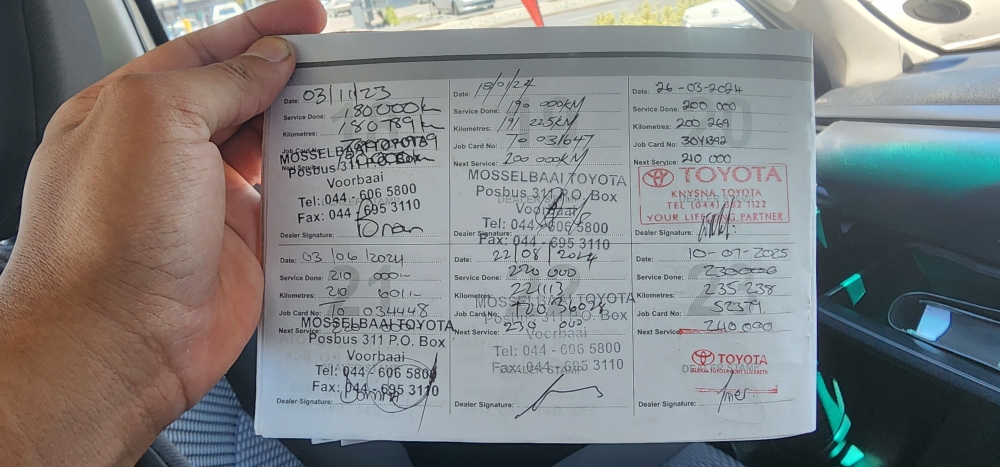 Date: 03/11/23
Service Done: 180000k
Kilometres: 180789k
Job Card No:
Next Service:
MOSSELBAAI TOYOTA
Posbus 311 P.O. Box
Voorbaai
Tel: 044 - 606 5800
Fax: 044 - 695 3110
Dealer Signature:
Date: 18/0/24
Service Done: 190 000KM
Kilometres: 191 225KM
Job Card No: To 031647
Next Service: 200 000KM
MOSSELBAAI TOYOTA
Posbus 311 P.O. Box
Voorbaai
Tel: 044 - 606 5800
Fax: 044 - 695 3110
Dealer Signature:
Date: 26-03-2024
Service Done: 200 000
Kilometres: 200 269
Job Card No:
Next Service: 210 000
TOYOTA
KNYSNA TOYOTA
TEL (044) 1122
YOUR PARTNER
Dealer Signature:
Date: 03/06/2024
Service Done: 210 000-
Kilometres: 210 601-
Job Card No: To 034448
Next Service:
MOSSELBAAI TOYOTA
Posbus 311 P.O. Box
Voorbaai
Tel: 044 - 606 5800
Fax: 044 - 695 3110
Dealer Signature:
Date: 22/08/2024
Service Done: 220 000
Kilometres:
Job Card No:
Next Service: 230 000
MOSSELBAAI TOYOTA
Posbus 311 P.O. Box
Voorbaai
Tel: 044 - 606 5800
Fax: 044 - 695 3110
DEALER STAMP
Dealer Signature:
Date: 10-07-2025
Service Done: 230000
Kilometres: 235 238
Job Card No: 52379
Next Service: 240 000
TOYOTA
Dealer Signature: